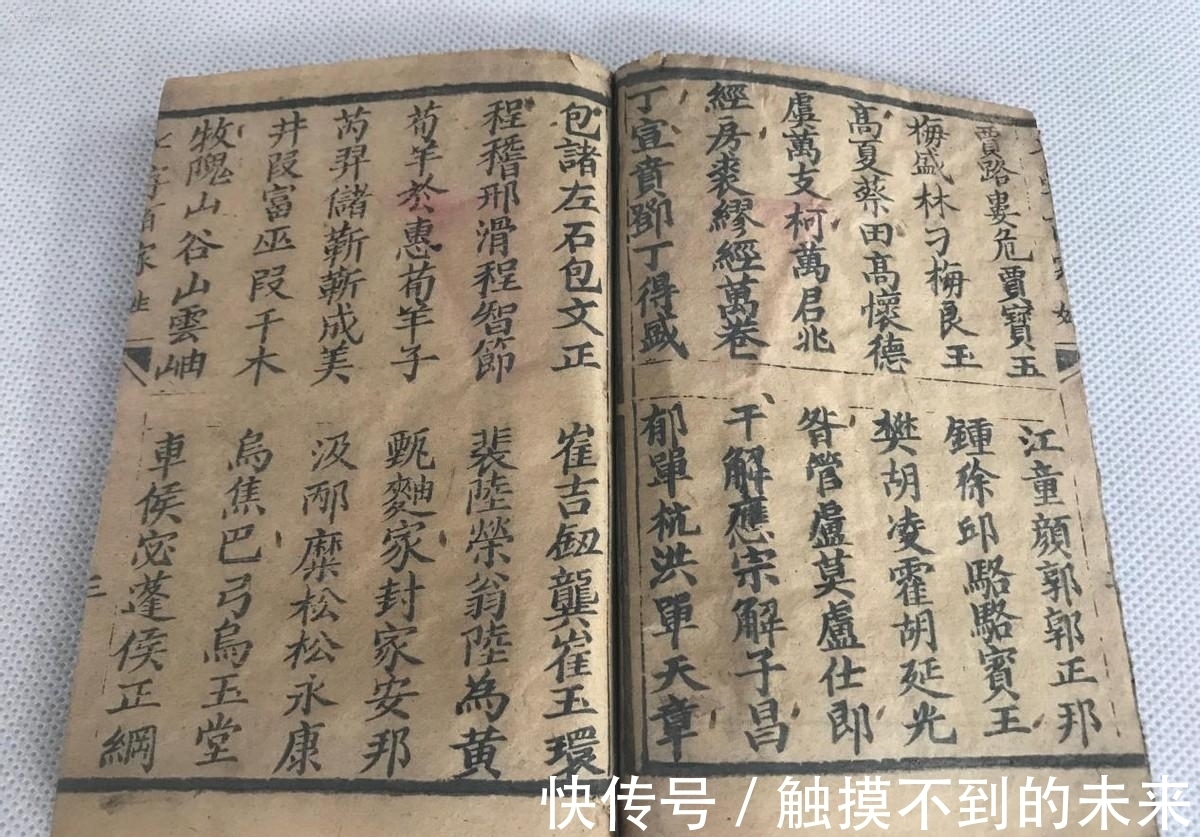 賈路婁危賈寶玉
江童顏郭郭正邦
梅盛林刁梅良玉
鍾徐邱駱駱賓王
高夏蔡田高懷德
樊胡凌霍胡延光
虞萬支柯萬君兆
昝管盧莫盧仕郎
經房裘繆經萬卷
干解應宗解子昌
丁宣賁鄧丁得盛
郁單杭洪單天章
包諸左石包文正
崔吉鈕龔崔玉環
程稽邢滑程智節
裴陸榮翁陸為黃
荀羊於惠荀羊子
甄麯家封家安邦
芮羿儲靳靳成美
汲邴糜松松永康
井段富巫段干木
烏焦巴弓烏玉堂
牧隗山谷山雲岫
車侯宓蓬侯正綱
字百家姓
快传号 / 触摸不到的未来